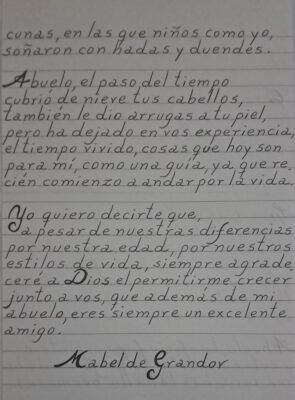 cunas, en las que niños como yo,
soñaron con hadas y duendes.
Abuelo, el paso del tiempo
cubrió de nieve tus cabellos,
también le dio arrugas a tu piel,
pero ha dejado en vos experiencia,
el tiempo vivido, cosas que hoy son
para mí, como una guía, ya que re_
cién comienzo a andar por la vida.
Yo quiero decirte que,
a pesar de nuestras diferencias
por nuestra edad, por nuestros
estilos de vida, siempre agrade_
ceré a Dios el permitirme crecer
junto a vos, que además de mi
abuelo, eres siempre un excelente
amigo.
Mabel de Grandov